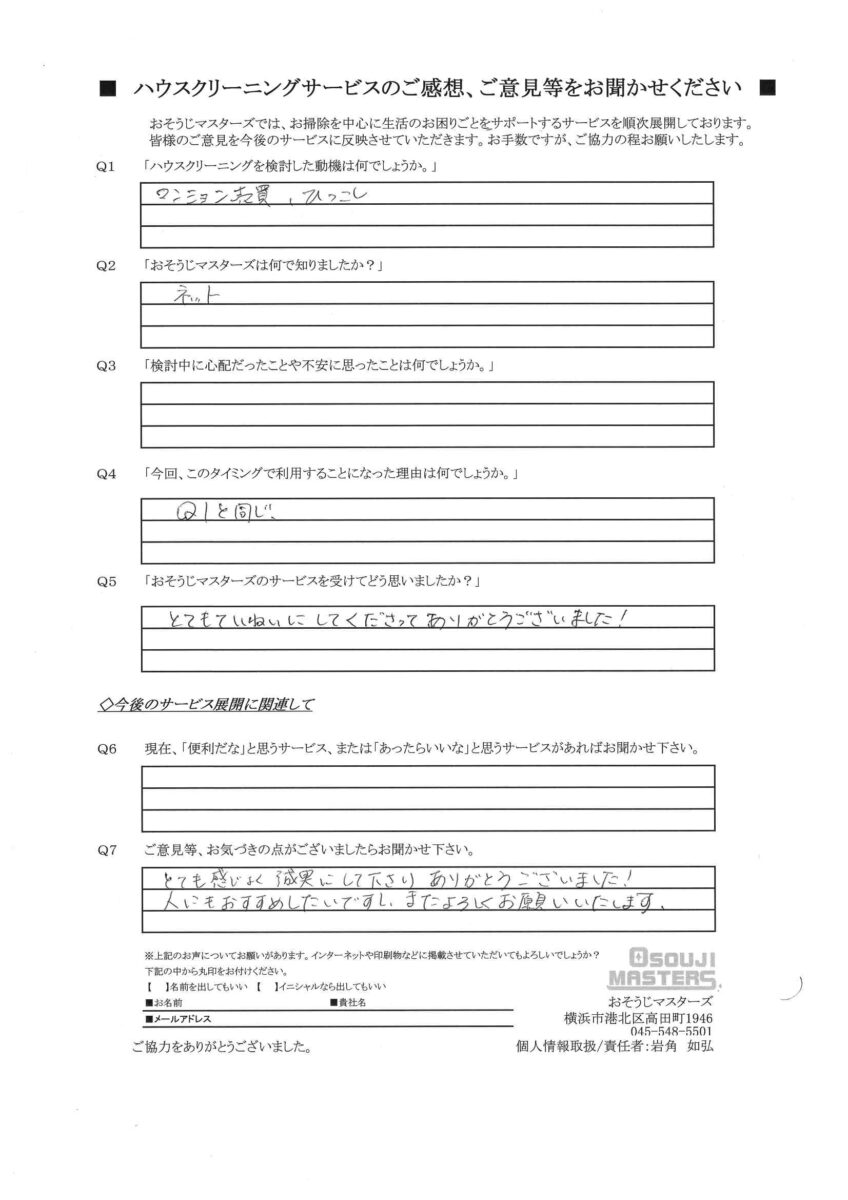 ■ ハウスクリーニングサービスのご感想、ご意見等をお聞かせください ■
おそうじマスターズでは、お掃除を中心に生活のお困りごとをサポートするサービスを順次展開しております。
皆様のご意見を今後のサービスに反映させていただきます。お手数ですが、ご協力の程お願いいたします。
Q1 「ハウスクリーニングを検討した動機は何でしょうか。」
マンション売買、ひっこし
Q2 「おそうじマスターズは何で知りましたか？」
ネット
Q3 「検討中に心配だったことや不安に思ったことは何でしょうか。」
Q4 「今回、このタイミングで利用することになった理由は何でしょうか。」
Q1と同じ、
Q5 「おそうじマスターズのサービスを受けてどう思いましたか？」
とてもていねいにしてくださってありがとうございました！
◇今後のサービス展開に関連して
Q6 現在、「便利だな」と思うサービス、または「あったらいいな」と思うサービスがあればお聞かせ下さい。
Q7 ご意見等、お気づきの点がございましたらお聞かせ下さい。
とても感じよく誠実にして下さりありがとうございました！
人にもおすすめしたいですし、またよろしくお願いいたします。
※上記のお声についてお願いがあります。インターネットや印刷物などに掲載させていただいてもよろしいでしょうか？
下記の中から丸印をお付けください。
【 】名前を出してもいい 【 】イニシャルなら出してもいい
■お名前 ■貴社名
■メールアドレス
ご協力をありがとうございました。
OSOUJI
MASTERS
おそうじマスターズ
横浜市港北区高田町1946
045-548-5501
個人情報取扱/責任者：岩角 如弘